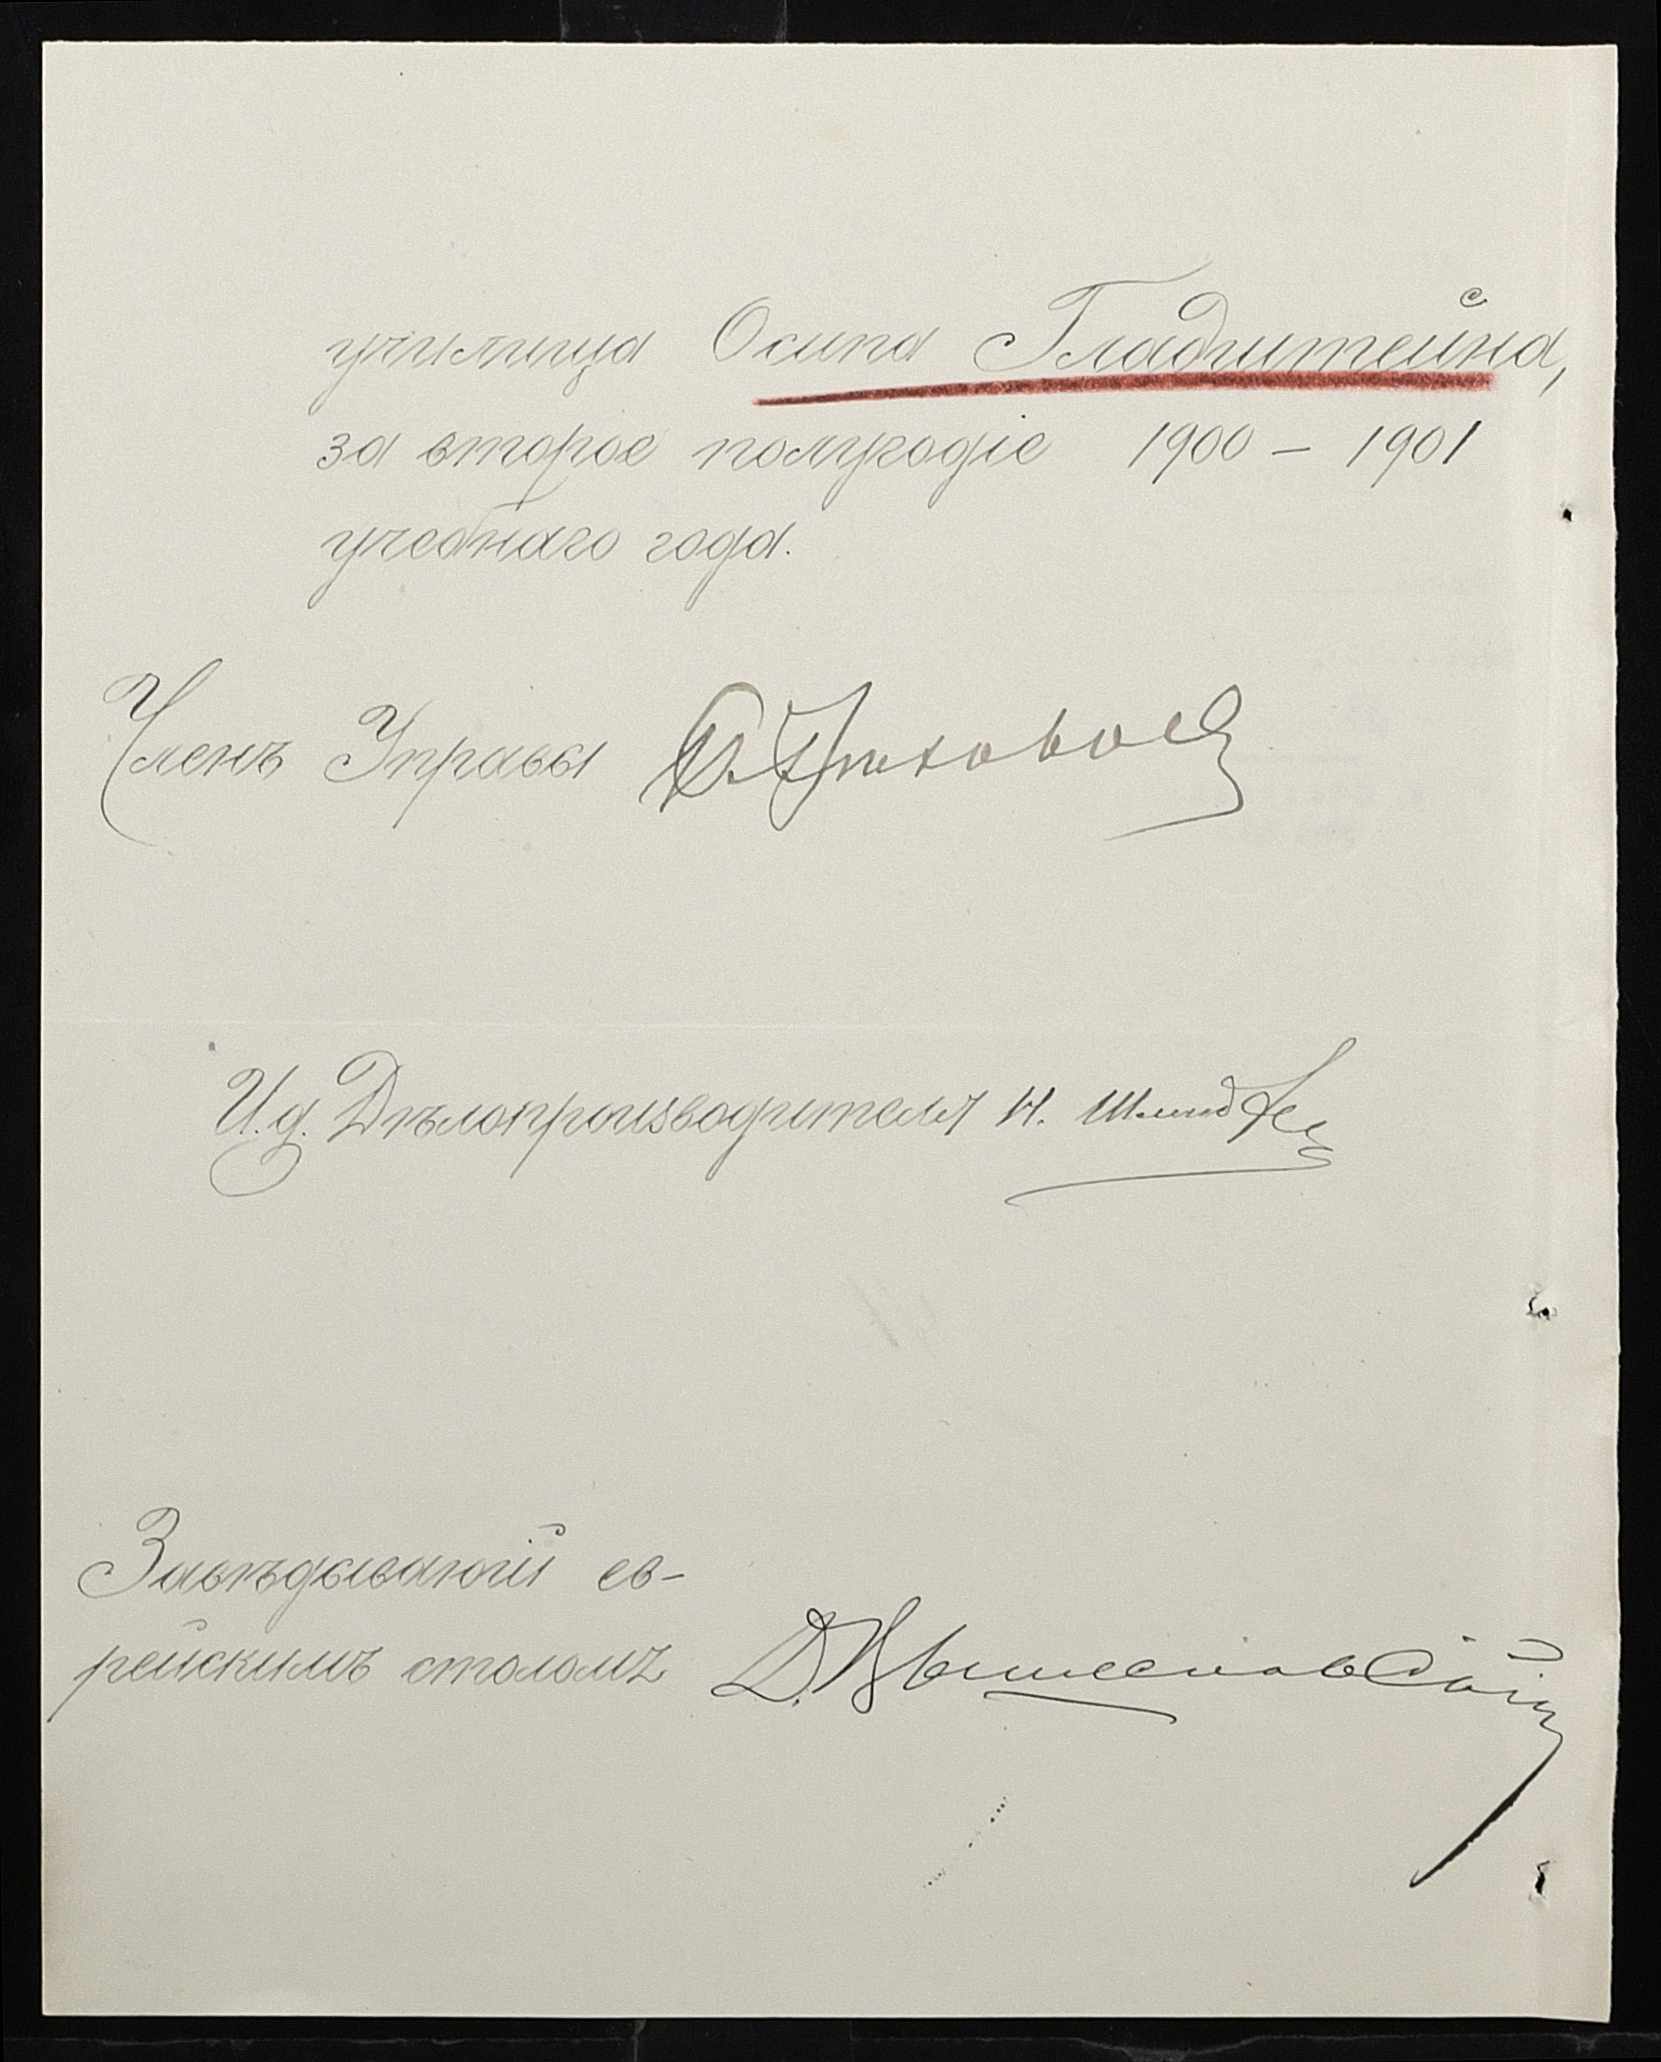 училища Осипа Гладштейна,
за второе полугодіе 1900 – 1901
учебнаго года.
Членъ Управы
И. д. Дѣлопроизводителя Н. Шмидтъ
Завѣдывающій ев-
рейскимъ столомъ Д. Вышеславскій